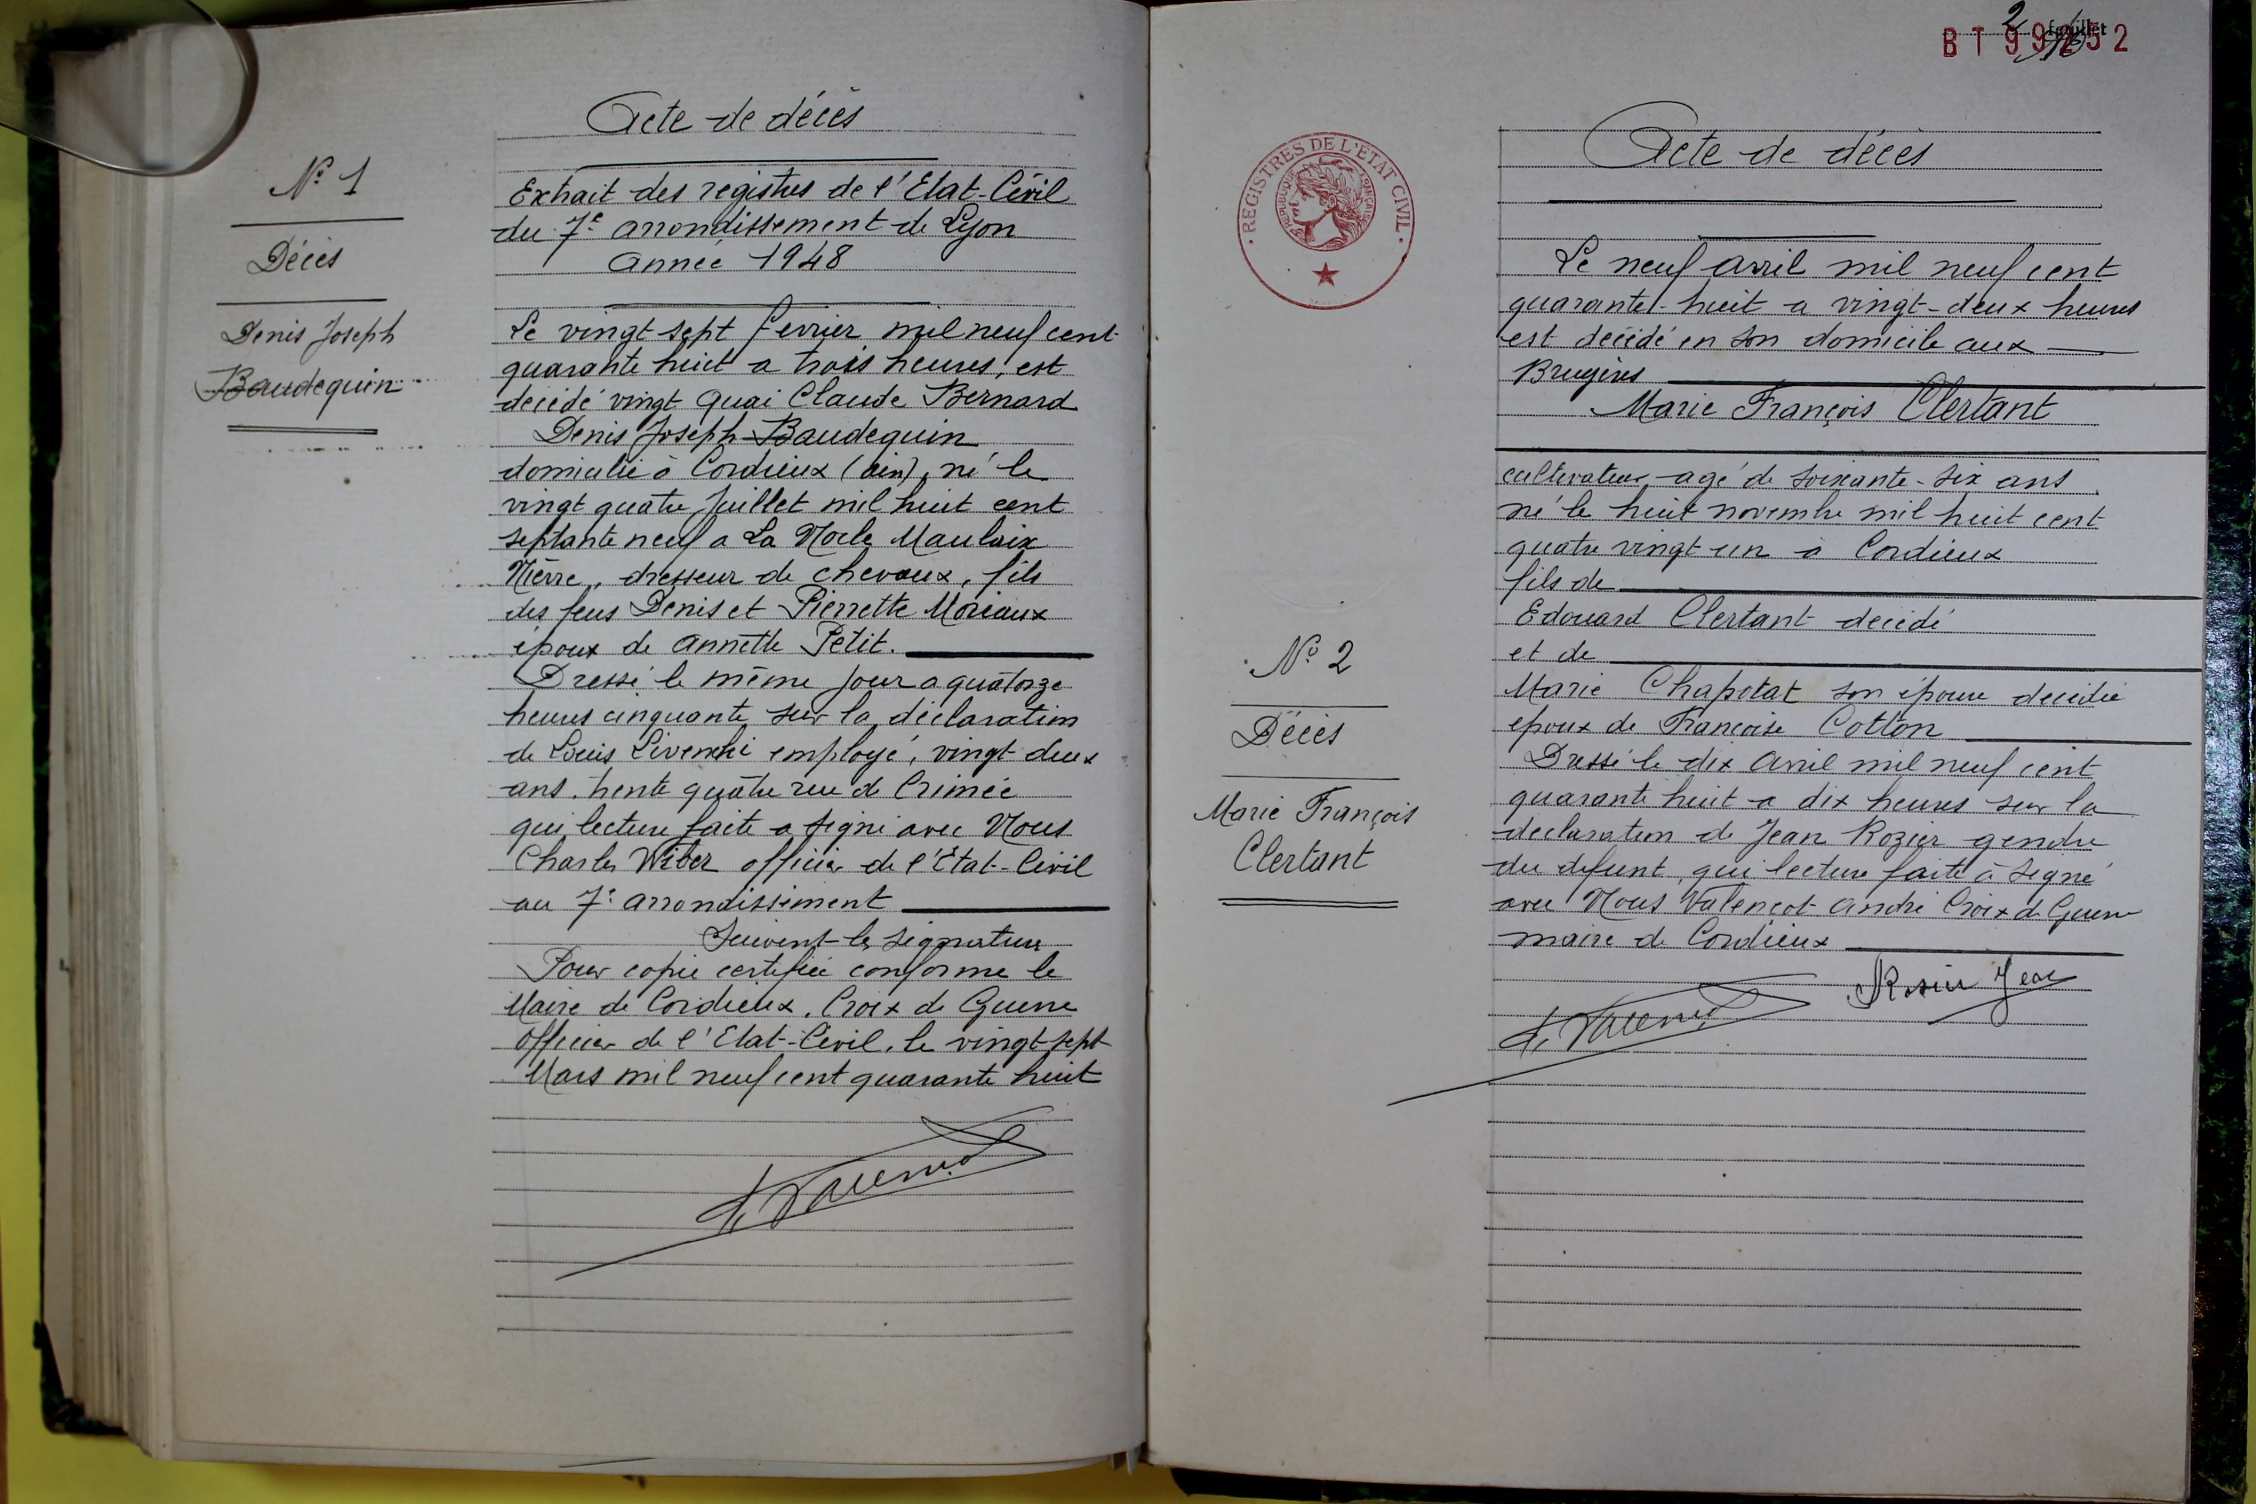 Acte de décès
N° 1
Décès
Denis Joseph
Baudequin
Extrait des registres de l'Etat-Civil
du 7e arrondissement de Lyon
année 1948
Le vingt sept fevrier mil neuf cent
quarante huit a trois heures, est
décédé vingt Quai Claude Bernard
Denis Joseph Baudequin
domicilié à Cordieux (ain), né le
vingt quatre Juillet mil huit cent
septante neuf a La Nocle Maulaix
Nièvre, dresseur de chevaux, fils
des feus Denis et Pierrette Moriaux
époux de Annette Petit.
Dressé le même jour a quatorze
heures cinquante sur la déclaration
de Louis employé, vingt deux
ans, trente quatre rue de Crimée
qui lecture faite a signé avec Nous
Charles Wiber officier de l'Etat-Civil
au 7e arrondissement
Suivent les signatures
Pour copie certifiée conforme le
Maire de Cordieux, Croix de Guerre
Officier de l'Etat-Civil, le vingt-sept
Mars mil neuf cent quarante huit
2
feuillet
BT 99252
REGISTRES DE L'ETAT CIVIL
REPUBLIQUE FRANÇAISE
Acte de décès
Le neuf avril mil neuf cent
quarante-huit a vingt-deux heures
est décédé en son domicile aux
Bruyères
Marie François Clertant
cultivateur, agé de soixante-six ans
né le huit novembre mil huit cent
quatre vingt un à Cordieux
fils de
Edouard Clertant decédé
et de
Marie Chapotat son épouse decédée
epoux de Francoise Cotton
N° 2
Décès
Marie François
Clertant
Dressé le dix avril mil neuf cent
quarante huit a dix heures sur la
declaration de Jean Rozier gendre
du defunt, qui lecture faite à signé
avec Nous Valençot andré Croix de Guerre
maire de Cordieux
Rosier Jean